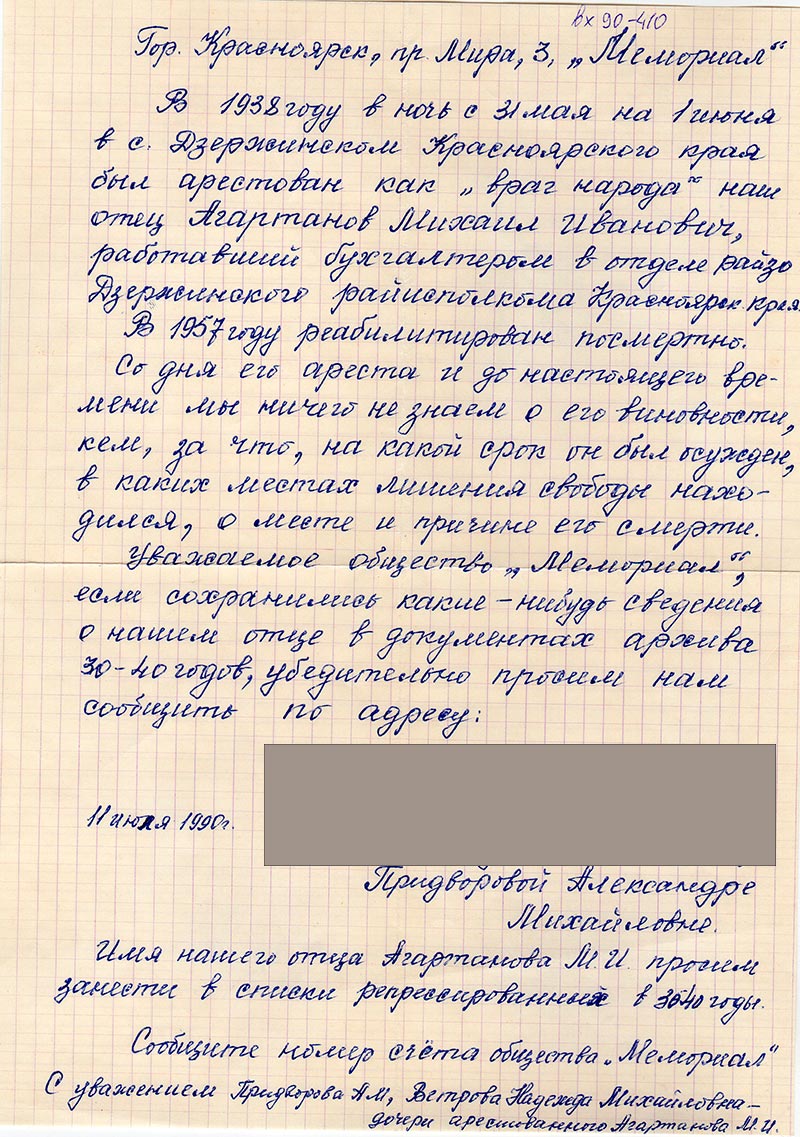 вх 90-410
Гор. Красноярск, пр. Мира, 3, „Мемориал“
В 1938 году в ночь с 31 мая на 1 июня
в с. Дзержинском Красноярского края
был арестован как „враг народа“ наш
отец Агартанов Михаил Иванович,
работавший бухгалтером в отделе райзо
Дзержинского райисполкома Красноярск. края.
В 1957 году реабилитирован посмертно.
Со дня его ареста и до настоящего вре-
мени мы ничего не знаем о его виновности,
кем, за что, на какой срок он был осужден,
в каких местах лишения свободы нахо-
дился, о месте и причине его смерти.
Уважаемое общество „Мемориал“,
если сохранились какие-нибудь сведения
о нашем отце в документах архива
30-40 годов, убедительно просим нам
сообщить по адресу:
11 июля 1990г.
Придворовой Александре
Михайловне.
Имя нашего отца Агартанова М.И. просим
занести в списки репрессированных в 30-40 годы.
Сообщите номер счёта общества „Мемориал“
С уважением Придворова АМ, Ветрова Надежда Михайловна -
дочери арестованного Агартанова М.И.